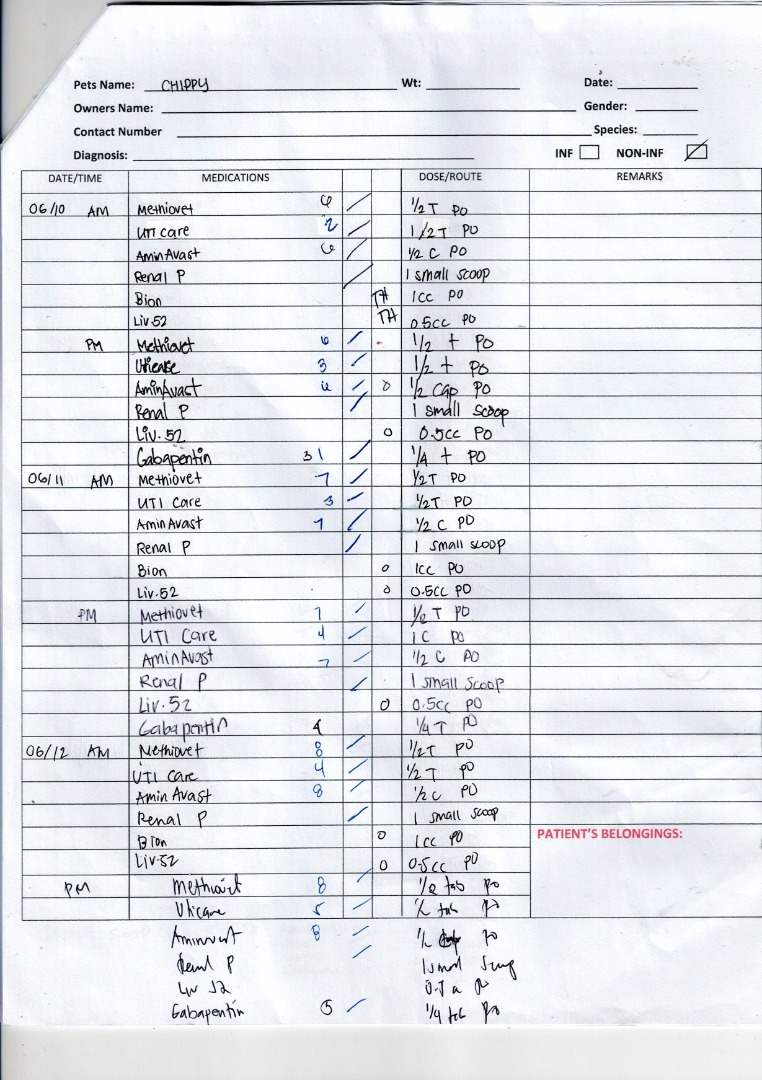 Pets Name: CHIPPY Wt: Date:
Owners Name: Gender:
Contact Number Species:
Diagnosis: INF NON-INF
DATE/TIME MEDICATIONS DOSE/ROUTE REMARKS
06/10 AM Methiovet 6 1/2 T PO
UTI care 2 1/2 T PO
AminAvast 6 1/2 C PO
Renal P 1 small scoop
Bion TH 1cc PO
Liv.52 TH 0.5cc PO
PM Methiovet 6 1/2 t PO
Uticase 3 1/2 t PO
AminAvast 6 0 1/2 cap PO
Renal P 1 small scoop
Liv.52 0 0.5cc PO
Gabapentin 31 1/4 t PO
06/11 AM Methiovet 7 1/2T PO
UTI care 3 1/2T PO
AminAvast 7 1/2 C PO
Renal P 1 small scoop
Bion 0 1cc PO
Liv.52 0 0.5cc PO
PM Methiovet 7 1/2 T PO
UTI Care 4 1 C PO
AminAvast 7 1/2 C PO
Renal P 1 small scoop
Liv.52 0 0.5cc PO
Gabapentin 4 1/4 T PO
06/12 AM Methiovet 8 1/2T PO
UTI care 4 1/2 T PO
Amin Avast 8 1/2 C PO
Renal P 1 small scoop
Bion 0 1cc PO
PATIENT'S BELONGINGS:
Liv.52 0 0.5cc PO
PM 8 1/2 tab PO
Uticare 5 tab PO
8 PO
Renal P 1 small
Liv 52
Gabapentin 5 1/4 tab PO